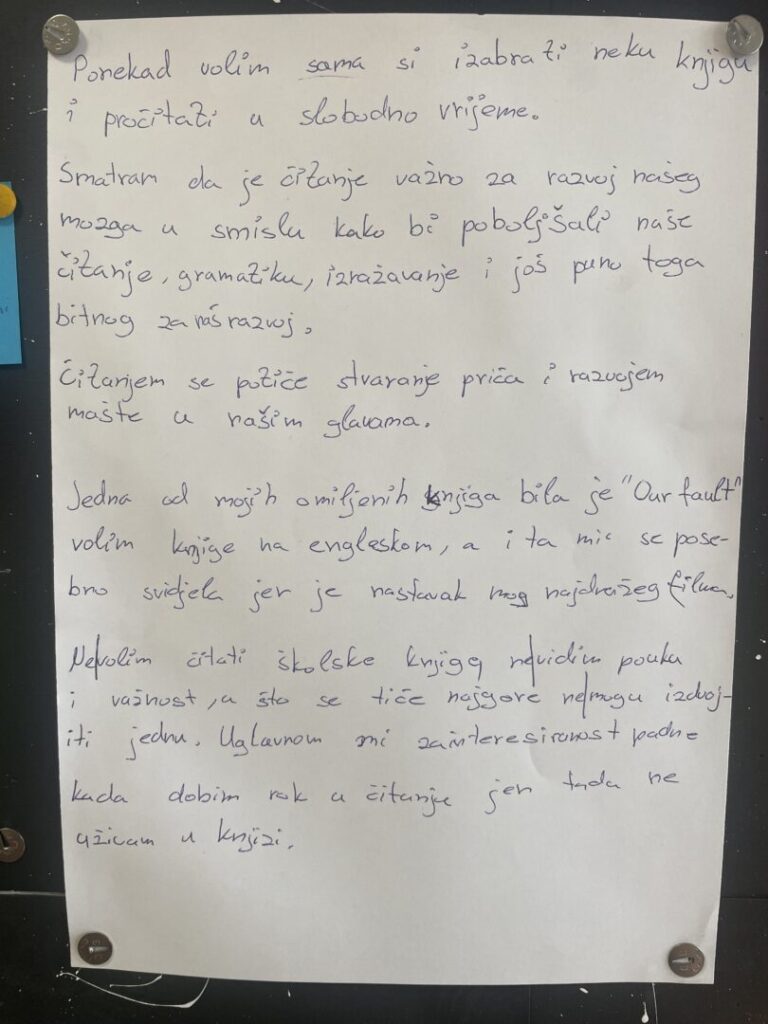 Ponekad volim sama si izabrati neku knjigu
i pročitati u slobodno vrijeme.
Smatram da je čitanje važno za razvoj našeg
mozga u smislu kako bi poboljšali naše
čitanje, gramatiku, izražavanje i još puno toga
bitnog za naš razvoj.
Čitanjem se potiče stvaranje priča i razvojem
mašte u našim glavama.
Jedna od mojih omiljenih knjiga bila je "Our fault"
volim knjige na engleskom, a i ta mi se pose-
bno svidjela jer je nastavak mog najdražeg filma.
Ne|volim čitati školske knjige ne|vidim pouku
i važnost, a što se tiče najgore ne|mogu izdvoj-
iti jednu. Uglavnom mi zainteresiranost padne
kada dobim rok u čitanju jer tada ne
uživam u knjizi.